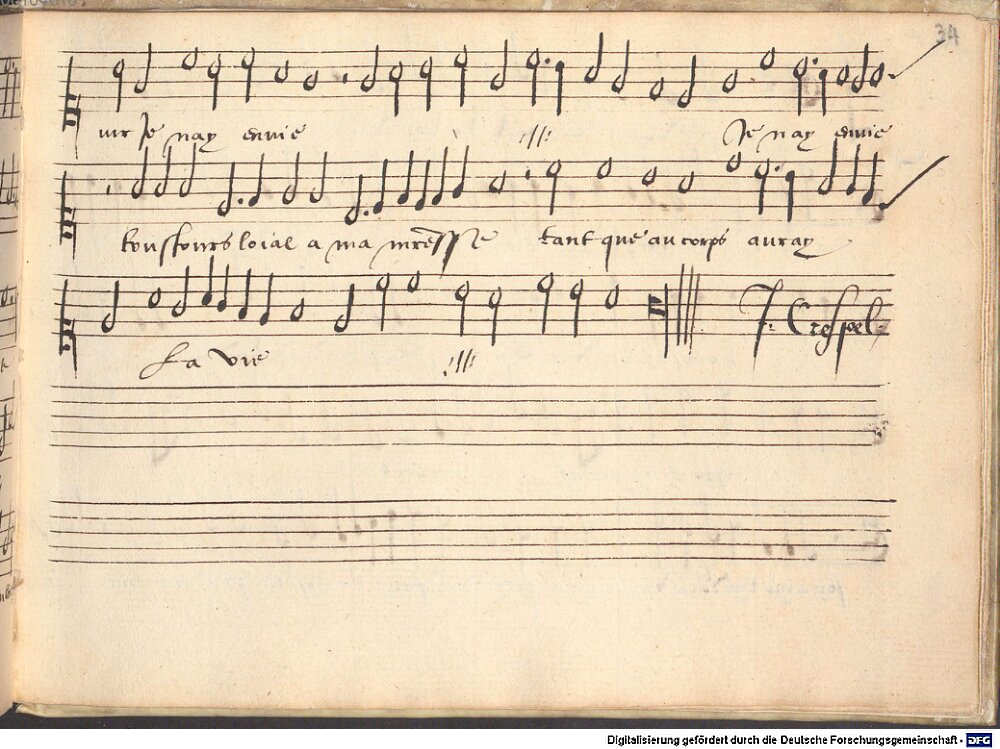 34
uir Je nay envie Je nay envie
tousiours loial a ma mresse tant que au corps auray
La vie
J. Crespel
Digitalisierung gefördert durch die Deutsche Forschungsgemeinschaft - DFG